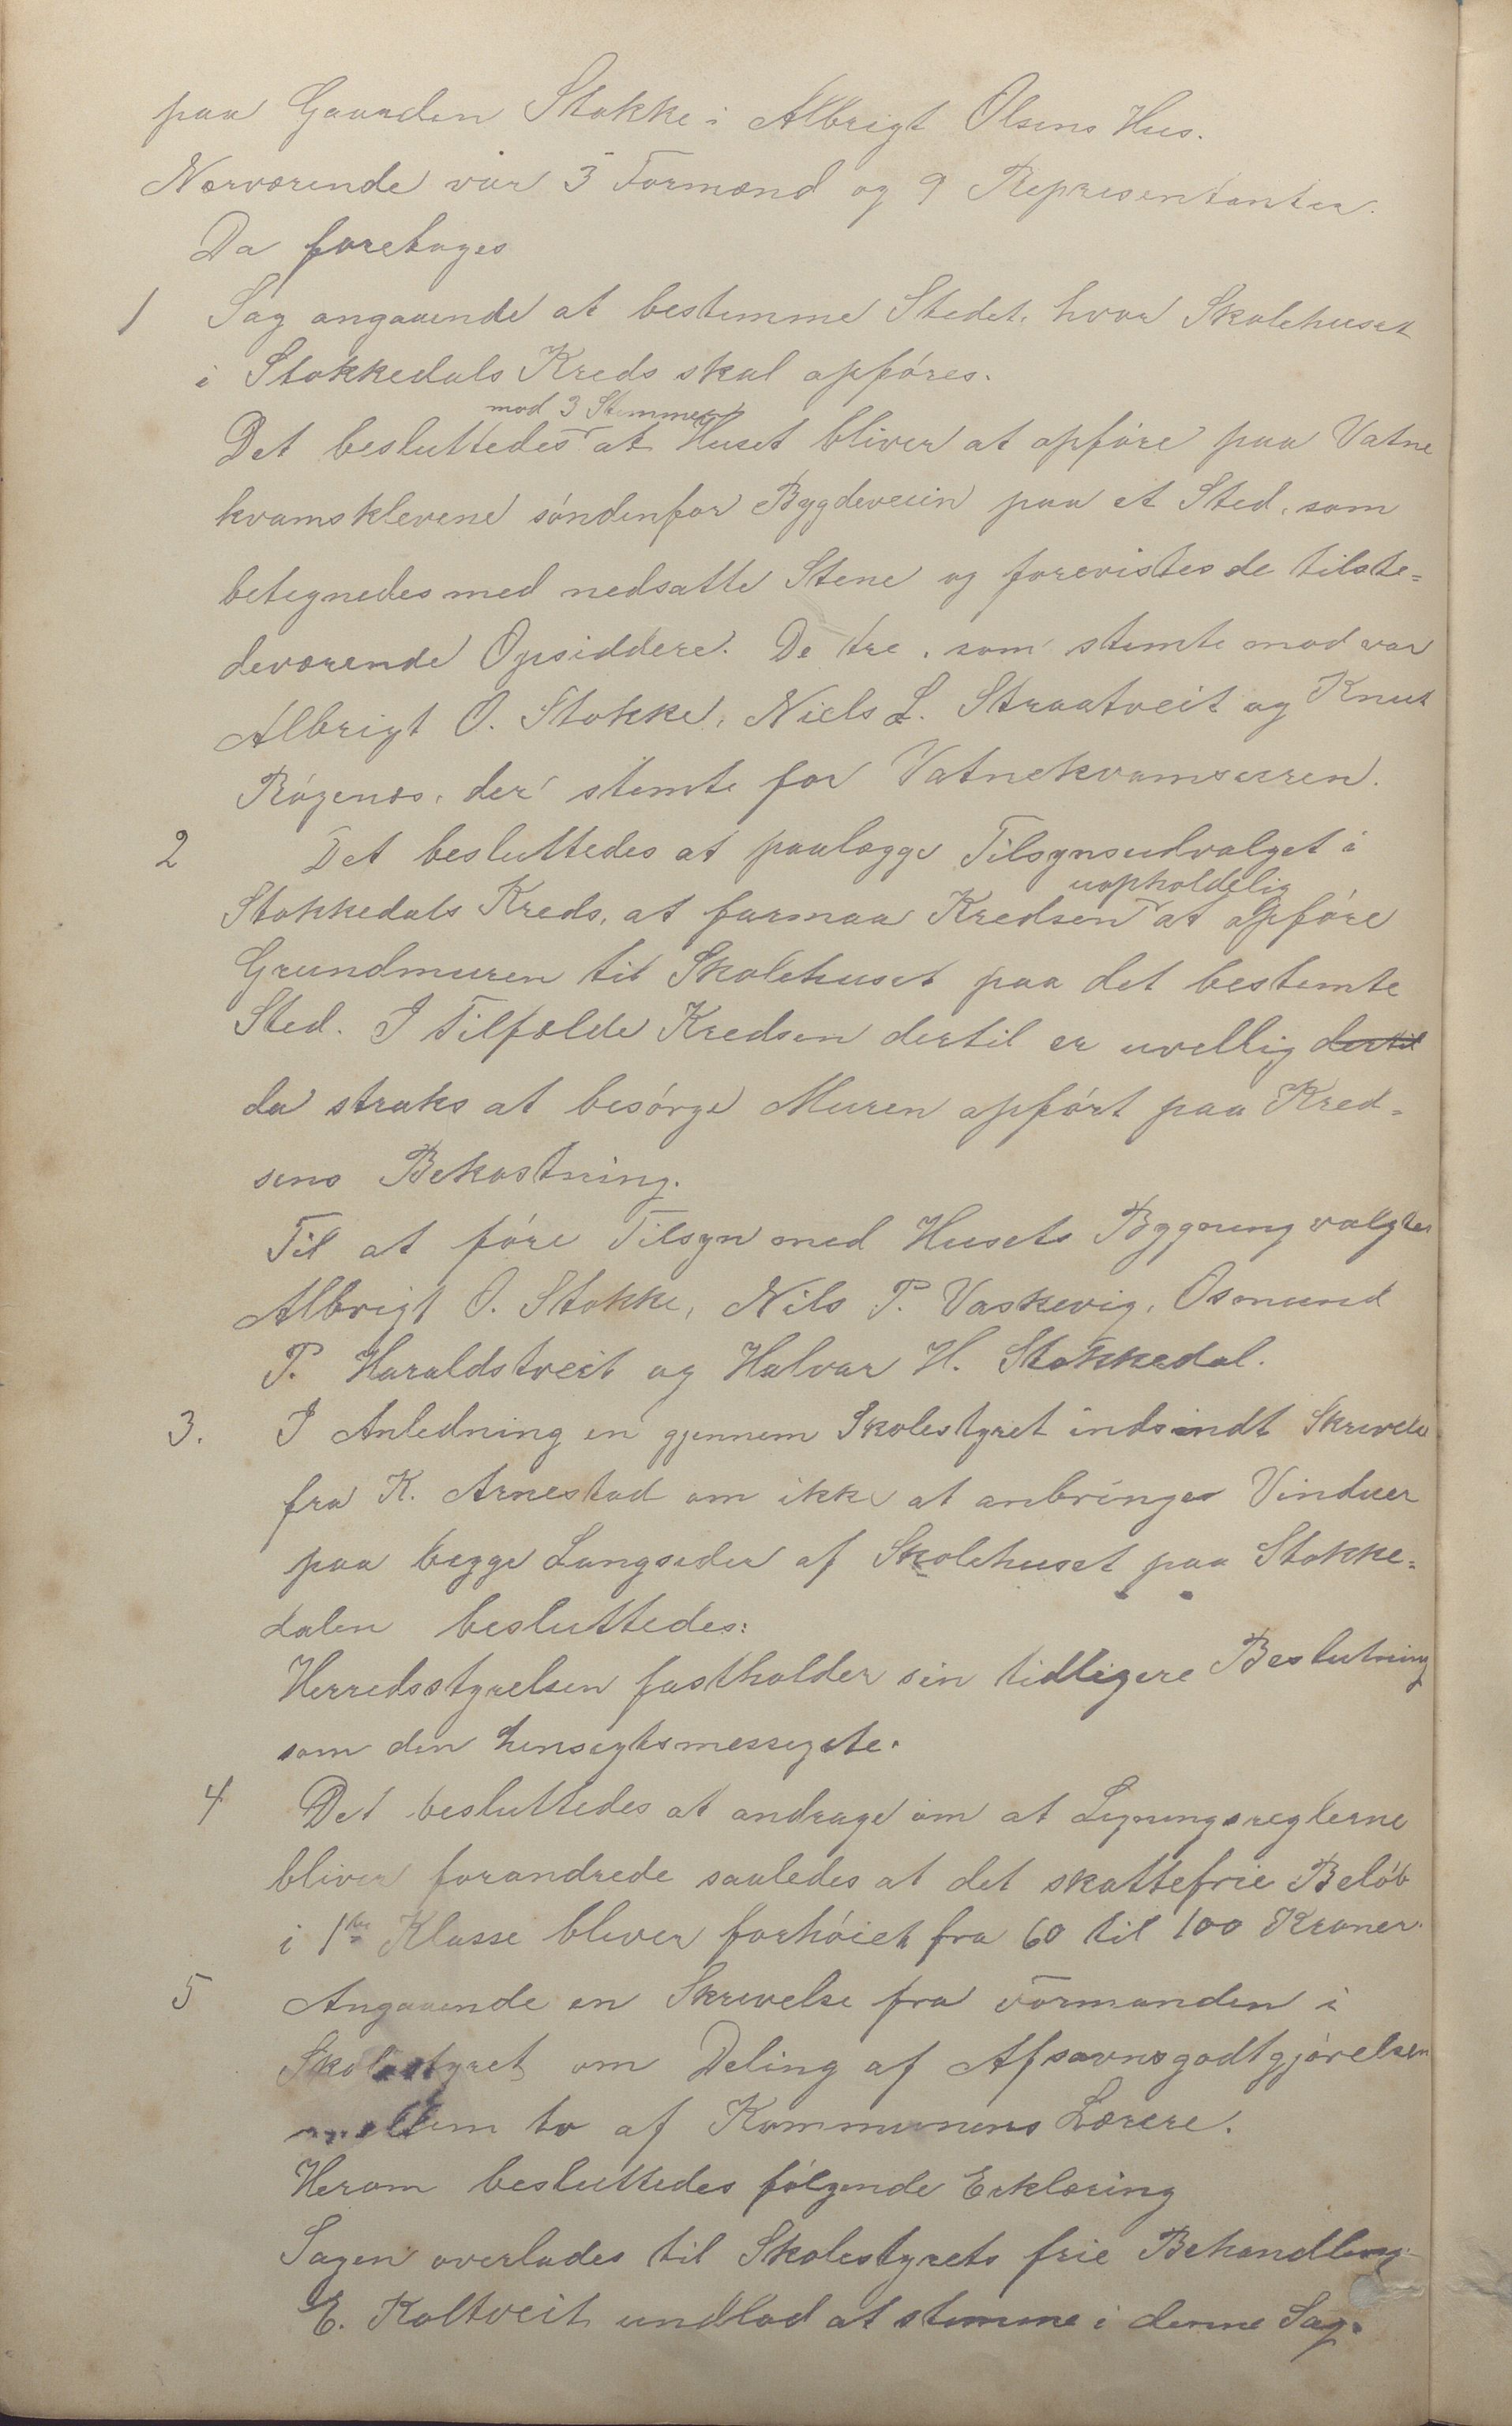 paa Gaarden Stokke i Albrigt Olsens Hus.
Nærværende var 3 Formænd og 9 Repræsentanter.
Da foretoges
1 Sag angaaende at bestemme Stedet, hvor Skolehuset
i Stokkedals Kreds skal opføres.
mod 3 Stemmer
Det besluttedes at Huset bliver at opføre paa Vatne
kvamsklevene søndenfor Bygdeveien paa et Sted, som
betegnedes med nedsatte Stene og forevistes de tilste-
deværende Opsiddere. De tre, som stemte mod var
Albrigt O. Stokke, Niels L. Straatveit og Knut
Røgenæs, der stemte for Vatnekvamsurren.
2 Det besluttedes at paalægge Tilsynsudvalget i
uopholdelig
Stokkedals Kreds, at formaa Kredsen at opføre
Grundmuren til Skolehuset paa det bestemte
Sted. I Tilfælde Kredsen dertil er uvellig dertil
da straks at besørge Muren opført paa Kred-
sens Bekostning.
Til at føre Tilsyn med Husets Bygning valgtes
Albrigt O. Stokke, Nils P. Vaskevig, Osmund
P. Haraldstveit og Halvar H. Stokkedal.
3. I Anledning en gjennem Skolestyret indsendt Skrivelse
fra K. Arnestad om ikke at anbringes Vinduer
paa begge Langsider af Skolehuset paa Stokke-
dalen besluttedes:
Herredsstyrelsen fastholder sin tidligere Beslutning
som den hensigtsmessigste.
4 Det besluttedes at andrage om at Ligningsreglerne
bliver forandrede saaledes at det skattefrie Beløb
i 1ste Klasse bliver forhøiet fra 60 til 100 Kroner.
5 Angaaende en Skrivelse fra Formanden i
Skolestyret om Deling af Afsavnsgodtgjørelsen
mellem to af Kommunens Lærere.
Herom besluttedes følgende Erklæring
Sagen overlades til Skolestyrets frie Behandling.
E. Koltveit undlod at stemme i denne Sag.